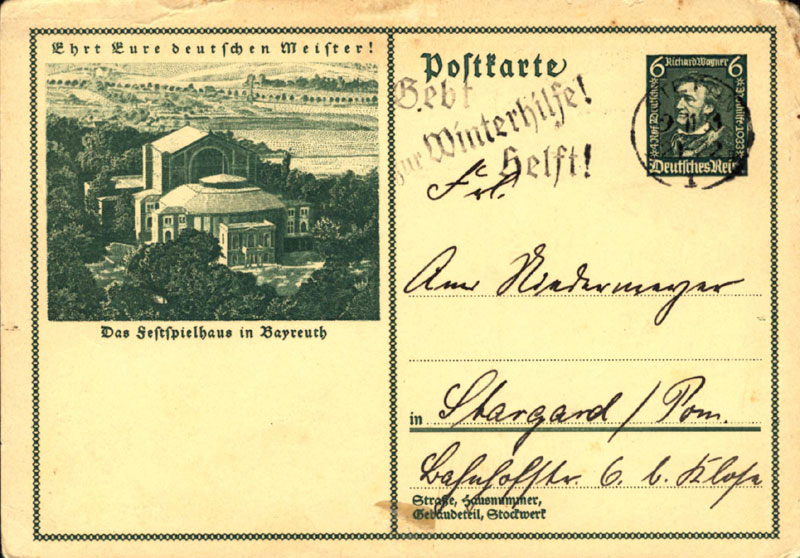 Ehrt Eure deutschen Meister!
Das Festspielhaus in Bayreuth
Postkarte
Gebt
zur Winterhilfe!
Helft!
6 Richard Wagner 6
Deutsches Reich
Frl.
Niedermeyer
in Stargard / Pom.
Bahnhofstr. 6. b. Klose
Straße, Hausnummer,
Gebäudeteil, Stockwerk